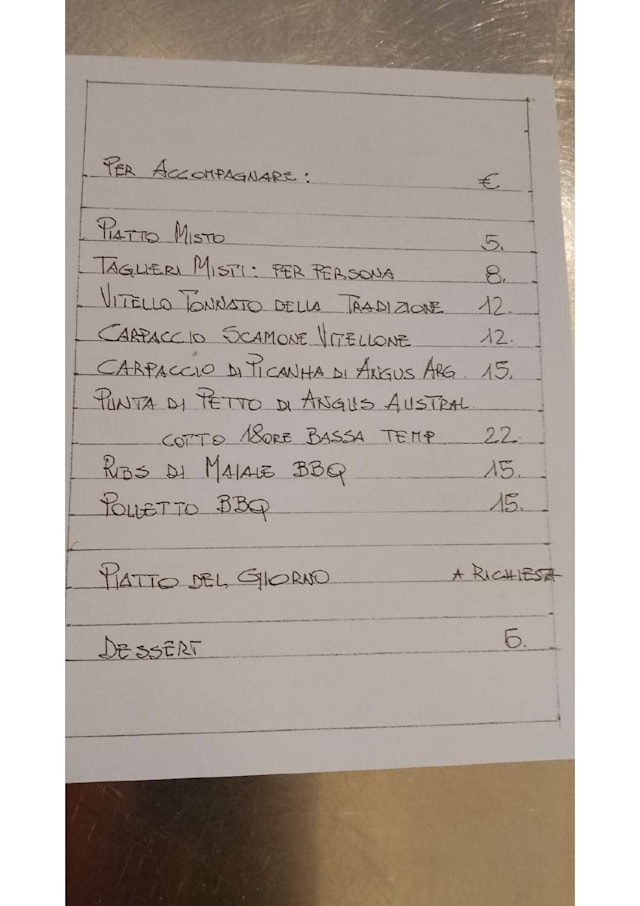 PER ACCOMPAGNARE: €
PIATTO MISTO 5.
TAGLIERI MISTI: PER PERSONA 8.
VITELLO TONNATO DELLA TRADIZIONE 12.
CARPACCIO SCAMONE VITELLONE 12.
CARPACCIO DI PICANHA DI ANGUS ARG. 15.
PUNTA DI PETTO DI ANGUS AUSTRAL.
COTTO 18ORE BASSA TEMP 22.
RIBS DI MAIALE BBQ 15.
POLLETTO BBQ 15.
PIATTO DEL GIORNO A RICHIESTA
DESSERT 5.